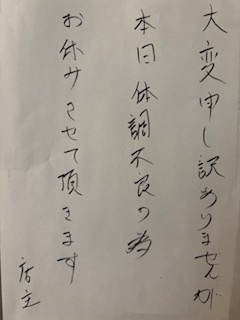 大変申し訳ありませんが
本日体調不良の為
お休みさせて頂きます
店主